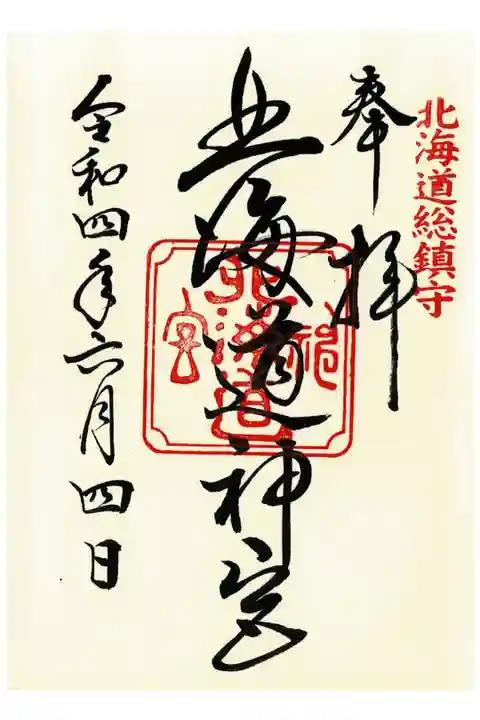 北海道総鎮守
奉拝
北海道神宮
北海道
神
宮
令和四年六月四日